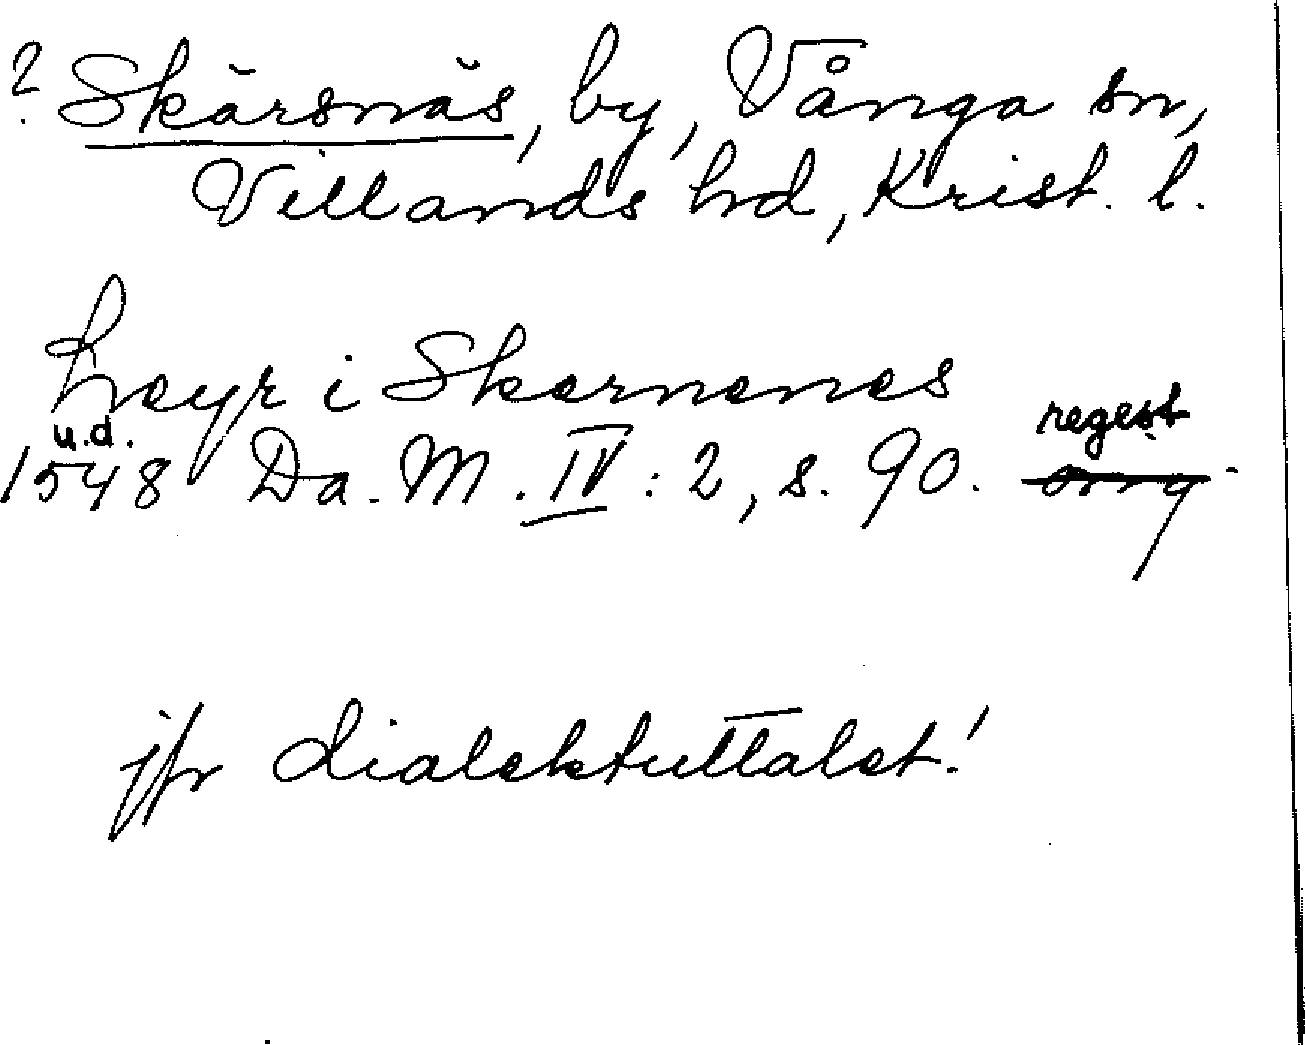 ? Skärsnäs, by, Vånga sn,
Villands hd, Krist. l.
i Skernenes
u.d. regest
1548 Da. M. IV : 2, s. 90.
jfr dialektuttalet!